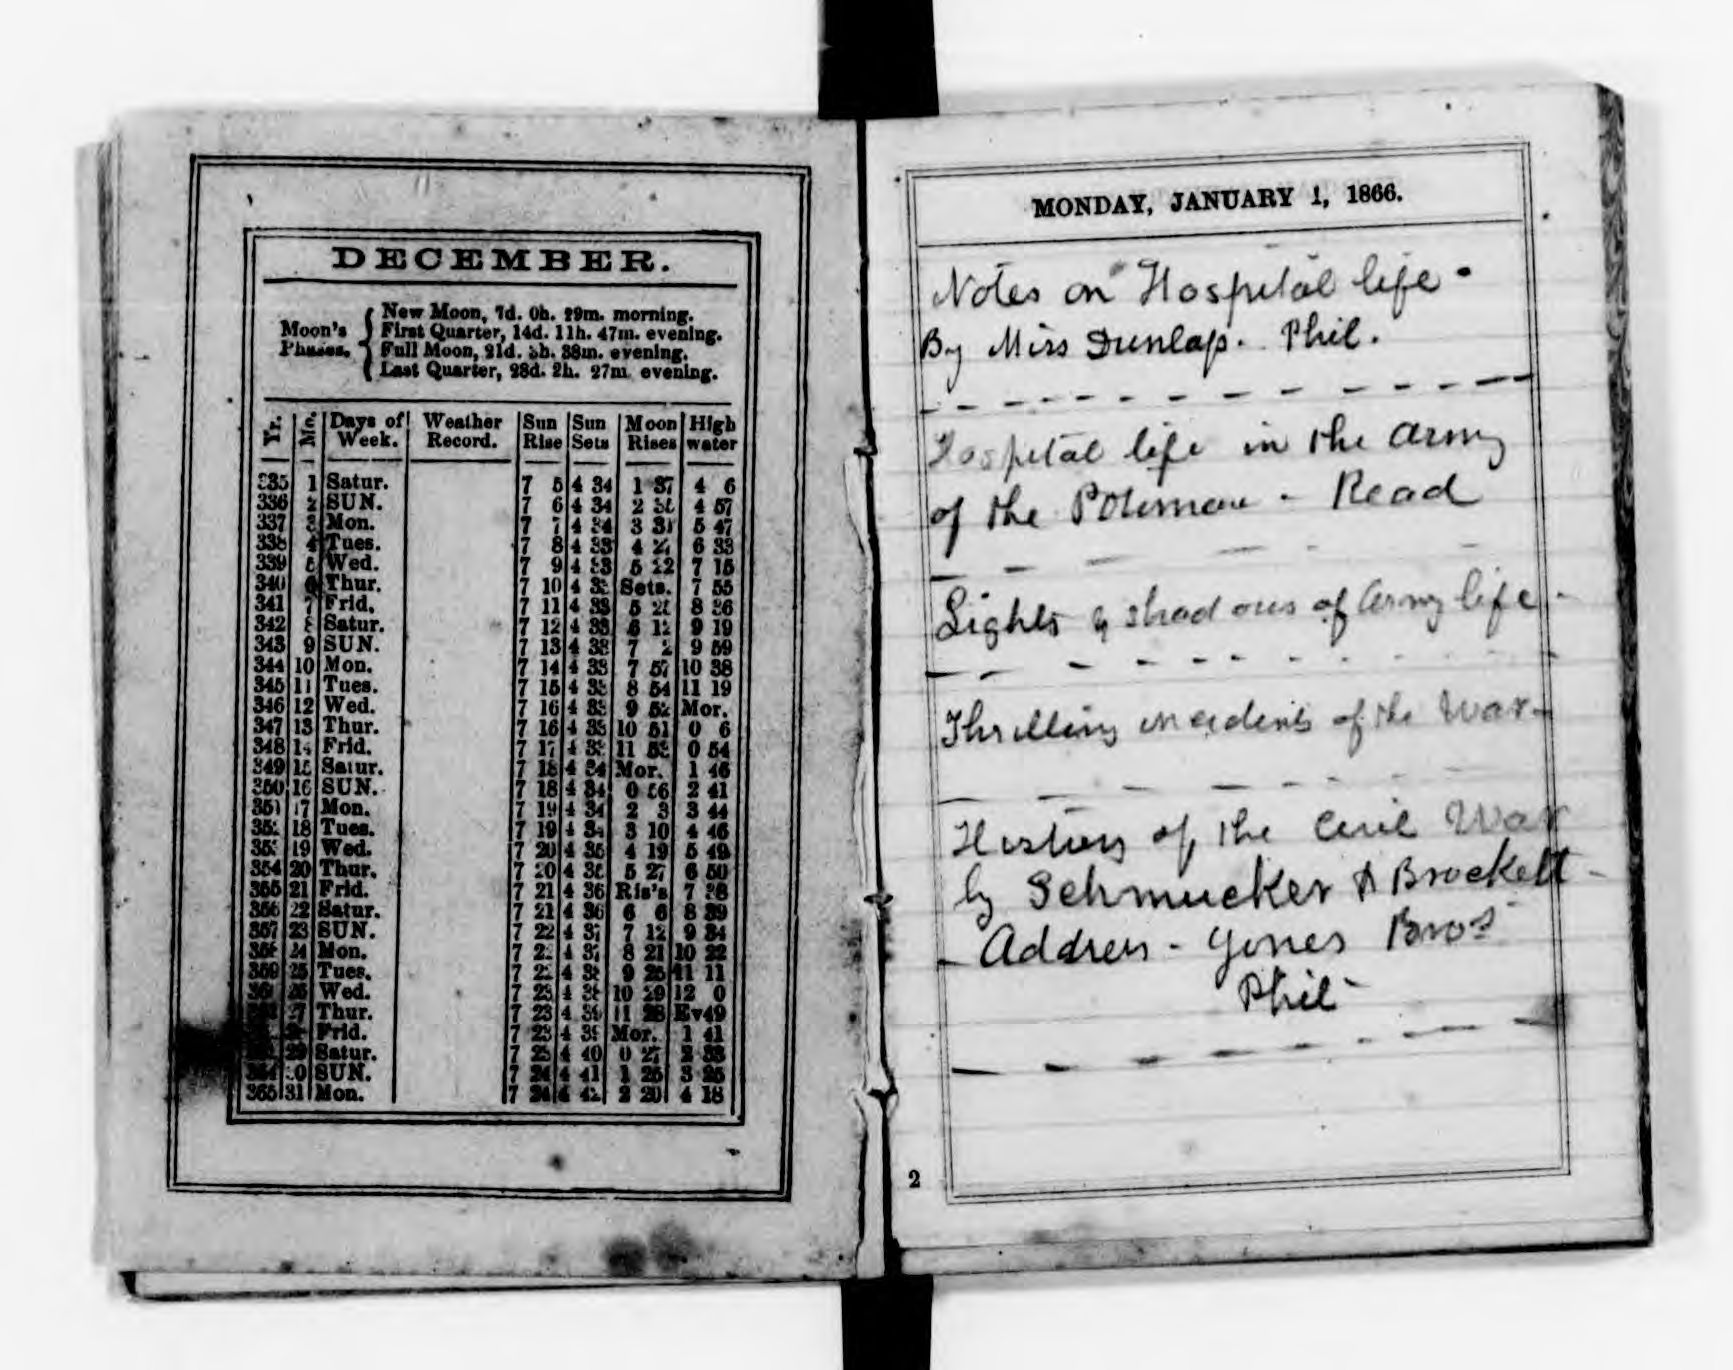 DECEMBER.
Moon's Phases.
New Moon, 7d. 0h. 29m. morning.
First Quarter, 14d. 11h. 47m. evening.
Full Moon, 21d. h. 38m. evening.
Last Quarter, 28d. 2h. 27m. evening.
Yr. Mo. Days of Week. Weather Record. Sun Rise Sun Sets Moon Rises High water
335 1 Satur. 7 5 4 34 1 37 4 6
336 2 SUN. 7 6 4 34 2 4 57
337 3 Mon. 7 7 4 34 3 31 5 47
338 4 Tues. 7 8 4 33 4 6 33
339 5 Wed. 7 9 4 33 5 22 7 15
340 6 Thur. 7 10 4 33 Sets. 7 55
341 7 Frid. 7 11 4 33 5 8 36
342 8 Satur. 7 12 4 33 6 12 9 19
343 9 SUN. 7 13 4 33 7 2 9 59
344 10 Mon. 7 14 4 33 7 57 10 38
345 11 Tues. 7 15 4 33 8 54 11 19
346 12 Wed. 7 16 4 33 9 52 Mor.
347 13 Thur. 7 16 4 33 10 51 0 6
348 14 Frid. 7 17 4 33 11 53 0 54
349 15 Satur. 7 18 4 34 Mor. 1 46
350 16 SUN. 7 18 4 34 0 56 2 41
351 17 Mon. 7 19 4 34 2 3 3 44
352 18 Tues. 7 19 4 34 3 10 4 46
353 19 Wed. 7 20 4 35 4 19 5 49
354 20 Thur. 7 20 4 35 5 27 6 50
355 21 Frid. 7 21 4 36 Ris's 7
356 22 Satur. 7 21 4 36 6 6 8 39
357 23 SUN. 7 22 4 37 7 12 9 34
358 24 Mon. 7 22 4 37 8 21 10 22
359 25 Tues. 7 22 4 38 9 25 11 11
26 Wed. 7 23 4 38 10 29 12 0
27 Thur. 7 23 4 39 11 28 Ev49
Frid. 7 23 4 39 Mor. 1 41
29 Satur. 7 23 4 40 0 27 2 33
30 SUN. 7 24 4 41 1 25 3 25
365 31 Mon. 7 24 4 42 2 20 4 18
MONDAY, JANUARY 1, 1866.
Notes on Hospital life.
By Miss Dunlap. Phil.
Hospital life in the Army
of the Potomac - Read
Lights & shadows of Army life -
Thrilling incidents of the War -
History of the Civil War
by Schmucker & Brockett -
- Address - Jones Bros
Phil -
2